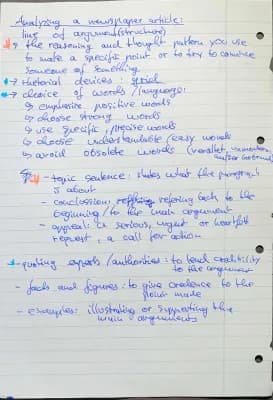 Analyzing a newspaper article:
line of argument (structure)
the reasoning and thought pattern you use
to make a specific point or to try to convince
someone of something
rhetorial devices: grid
choice of words / language:
emphasize, positive words
choose strong words
use specific, precise words
choose understandable / easy words
avoid obsolete words (veraltet,
- topic sentence: states what the paragraph
is about
- conclusion, refering back to the
beginning / to the main argument
- appeal: a serious, urgent or heartfelt
request, a call for action
- quoting experts / authorities: to lend credibility
to the argument
- facts and figures: to give credence to the
point made
- examples: illustrating or supporting the
main arguments